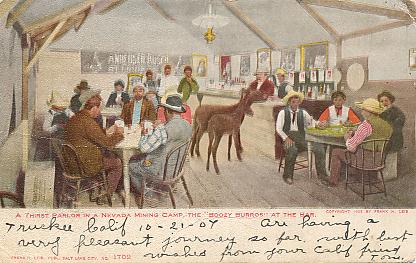 ANHEUSER BUSCH
A THIRST PARLOR IN A NEVADA MINING CAMP, THE "BOOZY BURROS" AT THE BAR. COPYRIGHT 1905 BY FRANK H. LEIB
Truckee Calif 10-21-07 Are having a
very pleasant journey so far, with best
wishes from your calif friend
FRANK H. LEIB, PUBL. SALT LAKE CITY, NO. 1702 Tom.